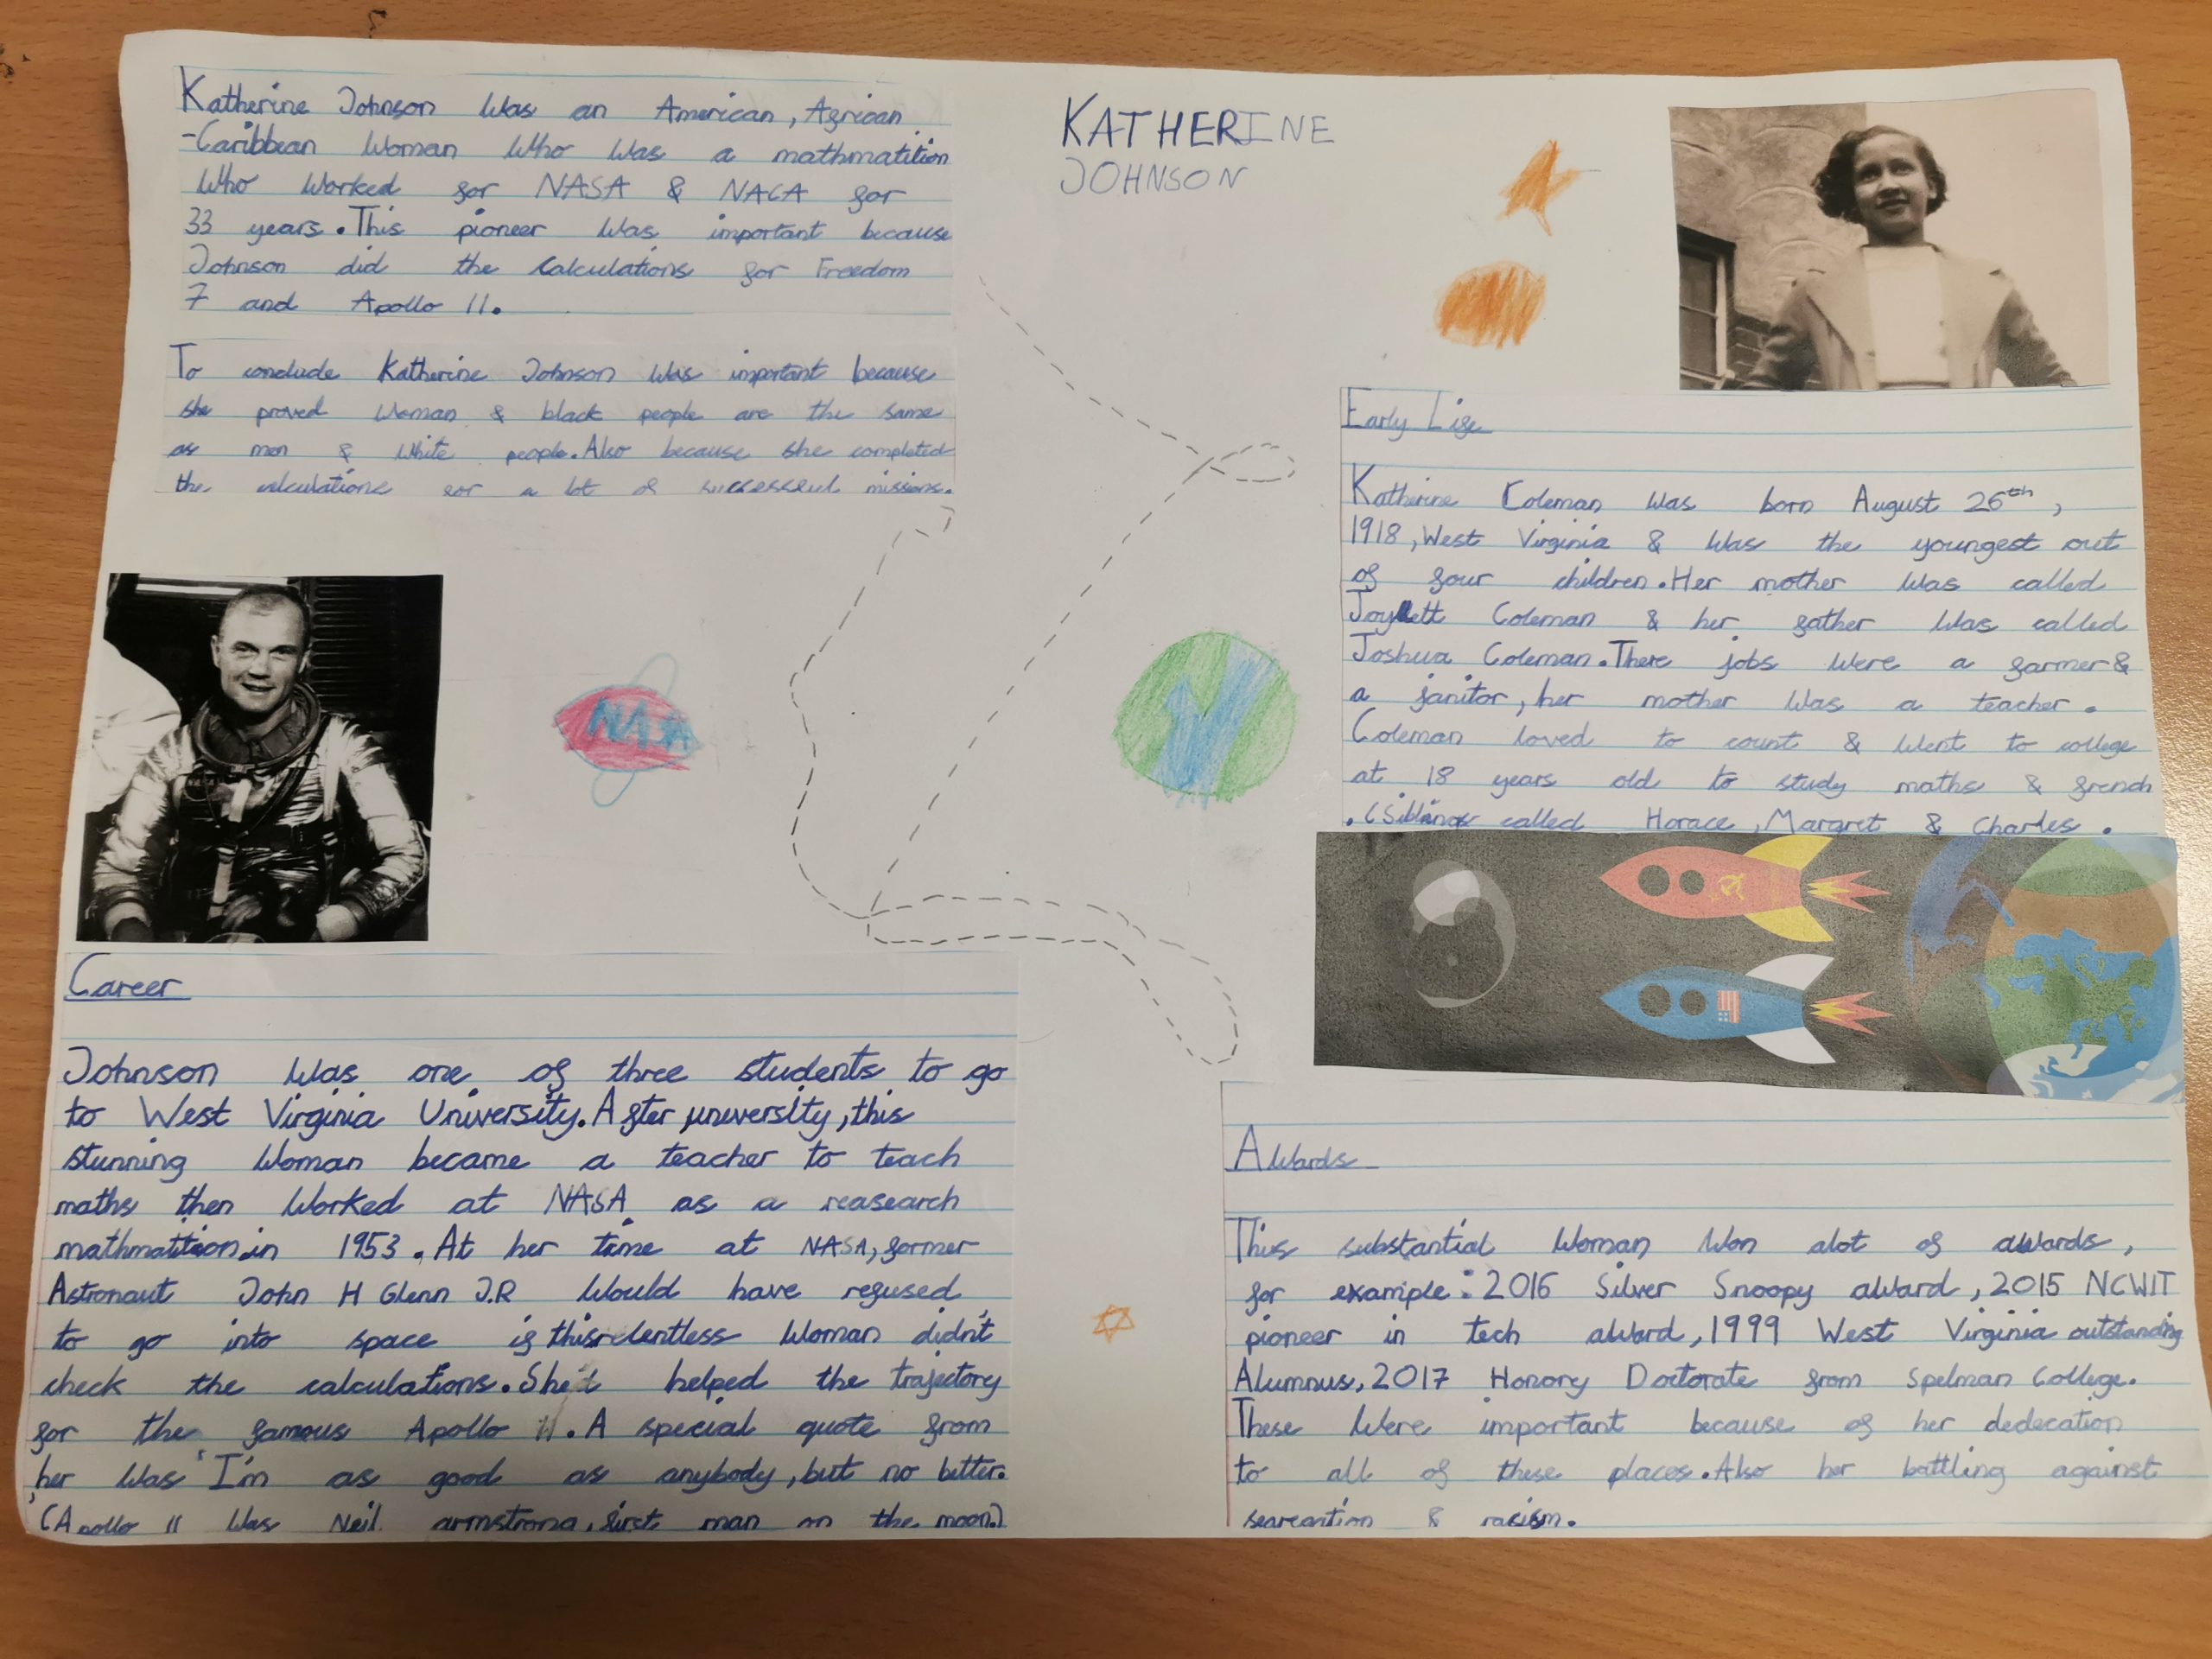 KATHERINE
JOHNSON
Katherine Johnson was an American, African
-Caribbean woman who was a mathmatition
who worked for NASA & NACA for
33 years. This pioneer was important because
Johnson did the calculations for Freedom
7 and Apollo 11.
To conclude Katherine Johnson was important because
she proved woman & black people are the same
as men & white people. Also because she completed
the calculations for a lot of successful missions.
NASA
Early Life
Katherine Coleman was born August 26th,
1918, West Virginia & was the youngest out
of four children. Her mother was called
Joylett Coleman & her father was called
Joshua Coleman. There jobs were a farmer &
a janitor, her mother was a teacher.
Coleman loved to count & went to college
at 18 years old to study maths & french
. (Siblings called Horace, Margret & Charles.
Career
Johnson was one of three students to go
to West Virginia University. After university, this
stunning woman became a teacher to teach
maths then worked at NASA as a reasearch
mathmatition in 1953. At her time at NASA, former
Astronaut John H Glenn J.R would have refused
to go into space if this relentless woman didn't
check the calculations. She helped the trajectory
for the famous Apollo 11. A special quote from
her was 'I'm as good as anybody, but no better.'
(Apollo 11 was Neil armstrong, first man on the moon.)
Awards
This substantial woman won alot of awards,
for example: 2016 Silver Snoopy award, 2015 NCWIT
pioneer in tech award, 1999 West Virginia outstanding
Alumnus, 2017 Honory Doctorate from Spelman College.
These were important because of her dedecation
to all of these places. Also her battling against
& racism.